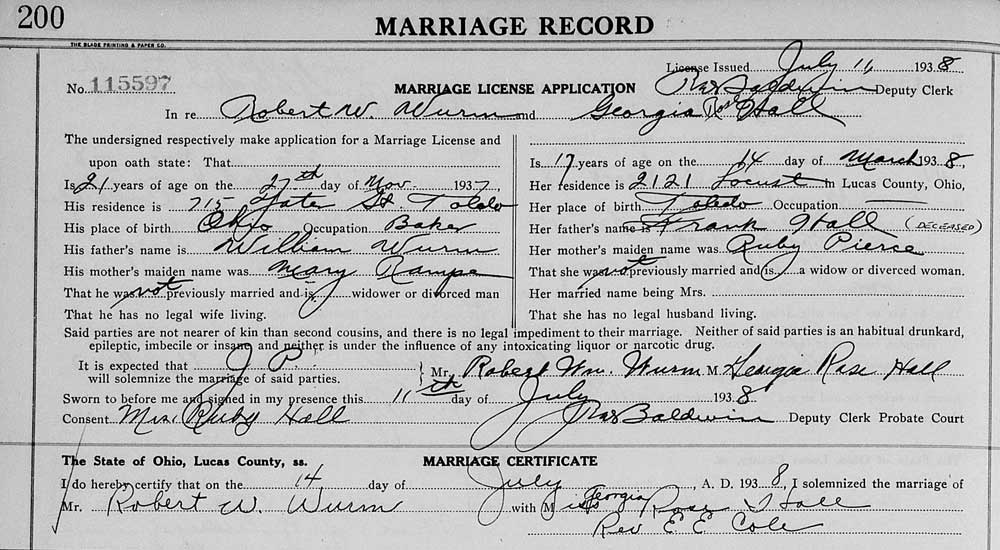 200
MARRIAGE RECORD
THE BLADE PRINTING & PAPER CO.
License Issued July 11, 1938
No. 115597 MARRIAGE LICENSE APPLICATION Baldwin Deputy Clerk
In re Robert W. Wurm and Georgia Rose Hall
The undersigned respectively make application for a Marriage License and
upon oath state: That
Is 21 years of age on the 27th day of Nov. 1937,
His residence is 715 Yates St. Toledo
His place of birth Ohio Occupation Baker
His father's name is William Wurm
His mother's maiden name was Mary Rampe
That he was not previously married and is widower or divorced man
That he has no legal wife living.
Is 17 years of age on the 14 day of March 1938,
Her residence is 2121 Locust in Lucas County, Ohio,
Her place of birth Toledo Occupation —
Her father's name is Frank Hall (DECEASED)
Her mother's maiden name was Ruby Pierce
That she was not previously married and is a widow or divorced woman.
Her married name being Mrs.
That she has no legal husband living.
Said parties are not nearer of kin than second cousins, and there is no legal impediment to their marriage. Neither of said parties is an habitual drunkard,
epileptic, imbecile or insane and neither is under the influence of any intoxicating liquor or narcotic drug.
It is expected that J. P.
will solemnize the marriage of said parties. } Mr. Robert Wm. Wurm M Georgia Rose Hall
Sworn to before me and signed in my presence this 11th day of July 1938.
Consent Mrs. Ruby Hall Baldwin Deputy Clerk Probate Court
The State of Ohio, Lucas County, ss. MARRIAGE CERTIFICATE
I do hereby certify that on the 14 day of July, A. D. 1938, I solemnized the marriage of
Mr. Robert W. Wurm with Miss Georgia Rose Hall
Rev E E Cole